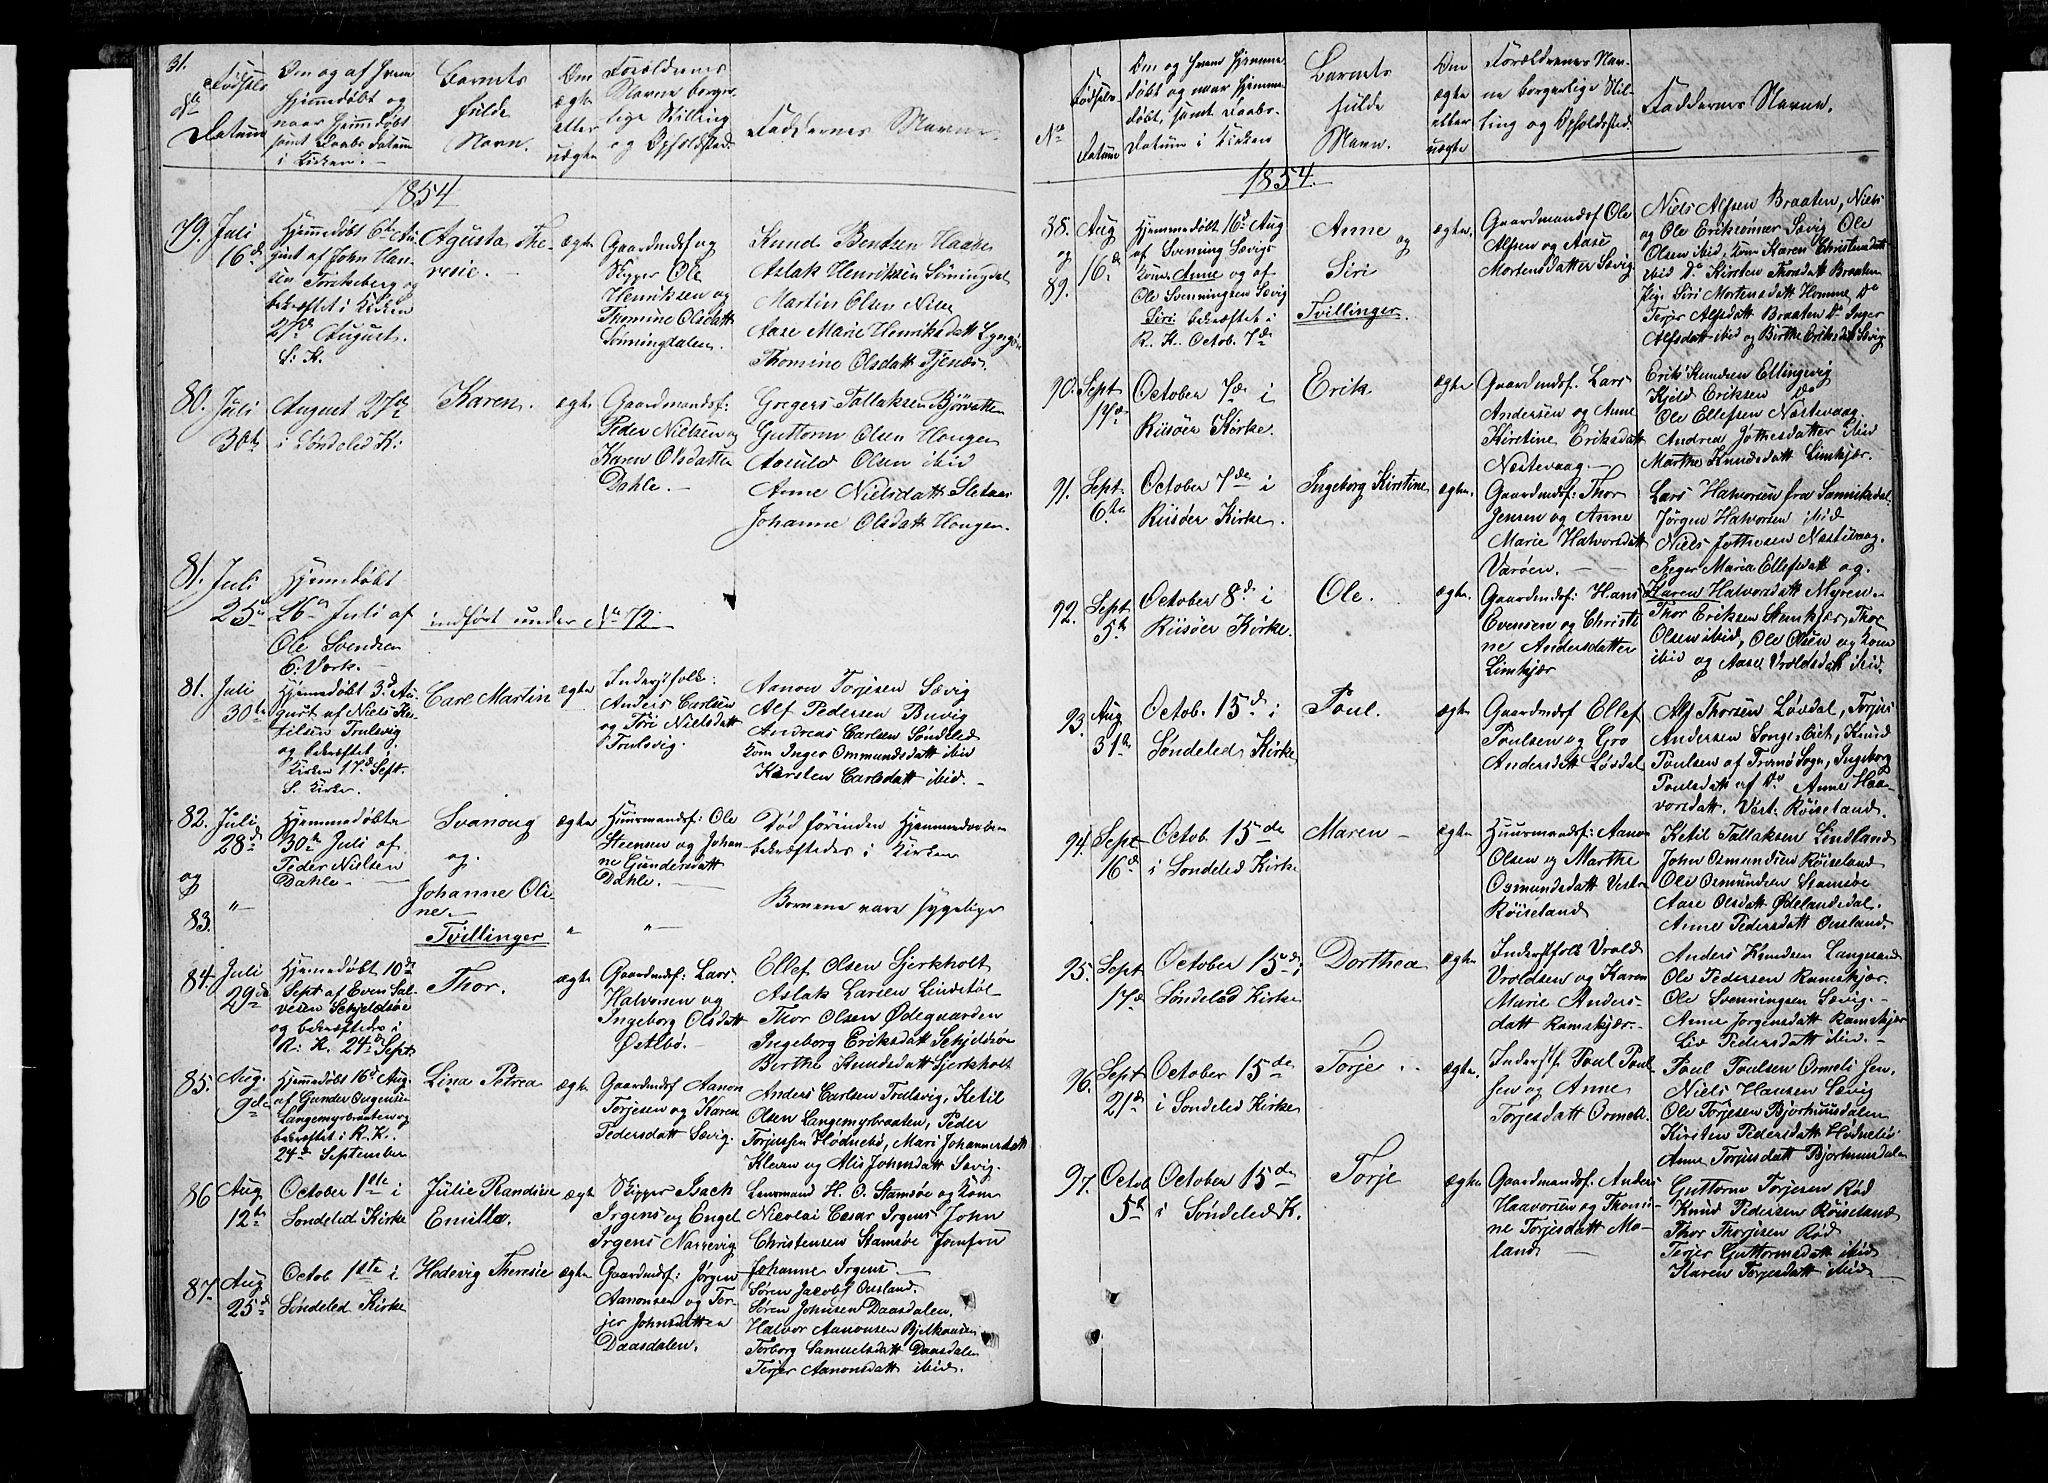 31.
Fødsels
Datum
Om og af hvem
hjemmedøbt og
naar hjemmedøbt
samt Daabs Datum
i Kirken.
Barnets
fulde
Navn.
Om
ægte
eller
uægte
Forældrenes
Navne borger-
lige Stilling
og Opholdsted.
Faddernes Navne.
1854
79. Juli
16d
Hjemmedøbt 6te Au-
gust af John Han-
sen
bekræftet i Kirken
27de August.
S. K.
Agusta The-
resie.
ægte
Gaardmdsf og
Skipper Ole
Henriksen og
Thomine Olsdatt
Sønningdalen.
Knud Bentsen Haave
Aslak Henriksen Sønningdal
Martin Olsen
Aase Marie Henriksdatt Lyngør
Thomine Olsdatt
80. Juli
3te
August 27de
i Søndeled K:
Karen.
ægte
Gaardmandsf:
Peder Nielsen og
Karen Olsdatter
Dahle.
Gregers Tallaksen Bjørvatten
Guttorm Olsen Hougen
Aasuld Olsen ibid
Anne Nielsdatt Sletaas
Johanne Olsdatt Hougen.
81. Juli
25d
Hjemmedøbt
26de Juli af
Ole Svendsen
E: Vark.
indført under No 72.
81. Juli
30te
Hjemmedøbt 3d Au-
gust af Niels Ke-
tilsen Trulsvig
og bekræftet i
Kirken 17d Sept.
S. Kirke.
Carl Martin
ægte
Inderstfolk:
Anders Carlsen
og Tori Nielsdatt
Trulsvig.
Aanon Torjesen Sævig
Alf Pedersen Buvig
Andreas Carlsen Søndeled
Kom Inger Ommundsdatt ibid
Kirsten Carlsdatt ibid.
82. Juli
28d
og
83.
Hjemmedøbte
30te Juli af
Peder Nielsen
Dahle.
Svanoug
og
Johanne Oli-
ne.
Tvillinger
ægte
Huusmandsf: Ole
Steensen og Johan-
ne Gundersdatt
Dahle.
Død førinden Hjemmedaaben
bekræftedes i Kirken
Børnene vare sygelige
84. Juli
29d
Hjemmedøbt 10de
Sept af Even Sal-
vesen Schjeldsøe
og bekræftedes i
R: K. 24d Sept.
Thor.
ægte
Gaardmdsf: Lars
Halvorsen og
Ingeborg Olsdatt
Østebø.
Ellef Olsen Sjerkholt
Aslak Larsen Lindstøl
Thor Olsen Ødegaarden
Ingeborg Eriksdatt Schjeldsøe
Berthe Knudsdatt Sjerkholt
85. Aug.
9de
Hjemmedøbt 16d Aug.
af Gunder
Langemyrbraaten og
bekræftet i R.K.
24d September
Lina Petrea
ægte
Gaardmdsf Aanon
Torjesen og Karen
Pedersdatt Sævig.
Anders Carlsen Trulsvig, Ketil
Olsen Langemyrbraaten, Peder
Torjussen Hødnebø, Mari Johannesdatt
Kleven og Alis Johnsdatt Sævig.
86 Aug.
12te
October 1ste i
Søndeled Kirke
Julie Randine
Emilie.
ægte
Skipper Isach
Irgens og Engel
Irgens Narrevig
Lensmand H. O. Stamsøe og Kone
Nicolai Cesar Irgens John
Christensen Stamsøe Jomfru
Johanne Irgens
87. Aug
25d
Octob. 1ste i
Søndeled Kirke
Hedevig Theresie
ægte
Gaardmdsf: Jørgen
Aanonsen og Ter-
jer Johnsdatter
Daasdalen.
Søren Jacobsen Ousland.
Søren Johnsen Daasdalen.
Halvor Aanonsen
Torborg Samuelsdatt Daasdalen
Terjer Aanonsdatt ibid.
No
Fødsels
Datum
Om og hvem hjemme
døbt og naar hjemme
døbt, samt Daabs-
Datum i Kirken
Barnets
fulde
Navn.
Om
ægte
eller
uægte
Forældrenes Nav-
ne borgerlige Stil-
ling og Opholdsted.
Faddernes Navne.
1854.
88.
og
89.
Aug
16d
Hjemmedøbt 16d Aug
af Svenning Sævigs
Kone Anne og af
Ole Svenningsen Sævig
Siri bekræftet i
R. K. Octob. 7de
Anne
og
Siri
Tvillinger.
ægte
Gaardmandsf Ole
Alfsen og Aase
Mortensdatter Sævig
Niels Alfsen Braaten, Niels
og Ole Eriksønner Sævig Ole
Olsen ibid, Kom Karen Christensdatt
ibid Do Kirsten Thorsdatt Braaten
Pige Siri Mortensdatt Homme, Do
Terjer Alfsdatt Braaten Do Inger
Alfsdatt ibid og Birthe Eriksdatt Sævig
90. Sept
17d
October 7de i
Riisøer Kirke.
Erik
ægte
Gaardmdsf. Lars
Andersen og Anne
Kirstine Eriksdatt
Næstevaag.
Erik Knudsen Ellingvig
Kjeld Eriksen Do
Ole Ellefsen Næstevaag.
Andrea Jothesdatter ibid
Marthe Knudsdatt Limkjær.
91. Sept
6te
October 7de i
Riisøer Kirke.
Ingeborg Kirstine
ægte.
Gaardmdsf: Thor
Jensen og Anne
Marie Halvorsdatt
Varøen.
Lars Halvorsen fra Sannikedal
Jørgen Halvorsen ibid
Niels Jothesen Næstevaag.
Inger Maria Ellefsdatt og.
Karen Halvorsdatt Myren.
92. Sept
5te
October 8de i
Riisøer Kirke.
Ole.
ægte.
Gaardmdsf: Hans
Evensen og Christi-
ne Andersdatter
Limkjær
Thor Eriksen Stenkjær, Thor
Olsen ibid, Ole Olsen og Kone
ibid og Aase Vroldsdatt ibid.
93. Aug
31te
Octob. 15d i
Søndeled Kirke
Poul.
ægte
Gaardmdsf Ellef
Poulsen og Gro
Andersdatt Løvdal
Alf Thorsen Løvdal, Torjus
Andersen Songe Eiet, Knud
Poulsen af Tromø Sogn, Ingeborg
Poulsdatt af Do Anne Haa-
vorsdatt. Vest. Røiseland.
94. Sept
16d
Octob. 15de
i Søndeled Kirke
Maren
ægte
Huusmandsf: Aanon
Olsen og Marthe
Osmundsdatt Vestre
Røiseland
Ketil Tallaksen Lindland
John Osmundsen Røiseland
Ole Osmundsen Stamsøe
Aase Olsdatt Ødelandsdal.
Anne Pedersdatt Ousland.
95. Sept
17de
October 15de i
Søndeled Kirke
Dorthea
ægte
Inderstfolk Vrold
Vroldsen og Karen
Marie Anders-
datt Ramskjær.
Anders Knudsen Langesand
Ole Pedersen Ramskjær.
Ole Svenningsen Sævig.
Anne Jørgensdatt Ramskjær
Liv Pedersdatt ibid.
96. Sept
21de
October 15de
i Søndeled Kirke
Torje.
ægte.
Inderstf. Poul Poul-
sen og Anne
Torjesdatt Ormeli.
Poul Poulsen Ormeli Sen.
Niels Hansen Sævig
Ole Torjesen Bjorhuusdalen
Kirsten Pedersdatt Hødnebø
Anne Torjusdatt Bjorhuusdalen
97. Octob
5te
October 15de
i Søndeled K.
Torje
ægte
Gaardmandsf: Anders
Haavorsen og Thomi-
ne Torjesdatt Mo-
land
Guttorm Torjesen Rød
Knud Pedersen Røiseland
Thor Thorjesen Rød
Terjer Guttormsdatt ibid
Karen Torjesdatt ibid